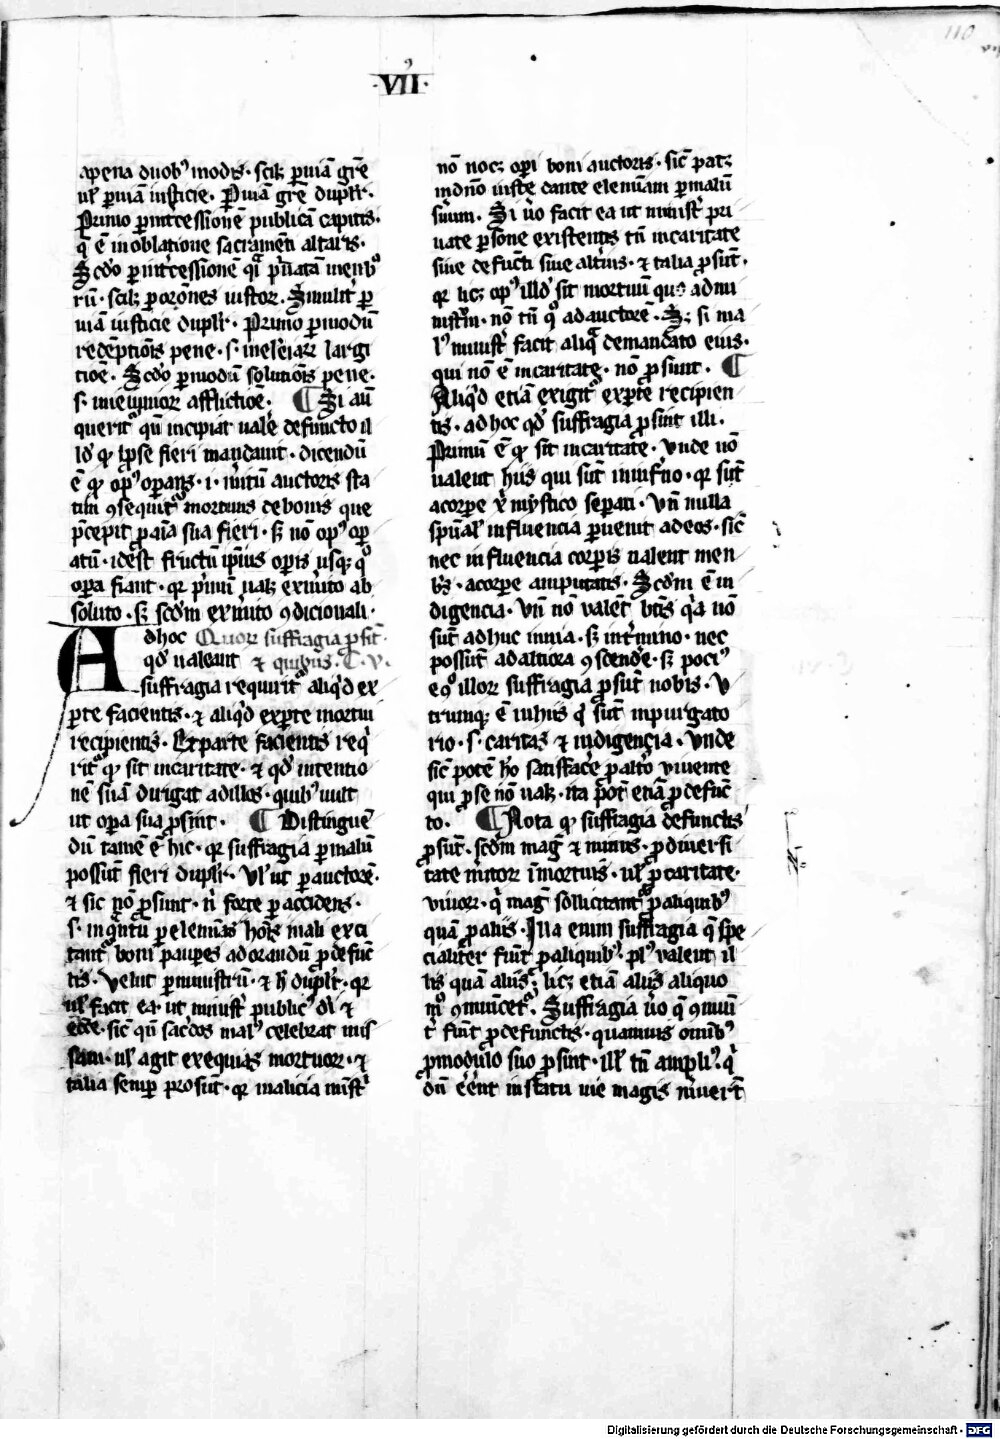 110
·VII·
a pena duob᷒ modis · scilꝫ ꝑ uiā gr̄e
ul̕ ꝑ uiā iusticie · Ꝑ uiā gr̄e dupl̕r ·
Primo ꝑ int̕cessionē publicā capitis ·
q̄ ē in oblatione sacramēti altaris ·
Scd̕o ꝑ int̕cessionē q̄i p̕uatā menbͦ
rū · scilꝫ ꝑ or̄ones iustoꝝ · Similit̕ ꝑ
uiā iusticie dupl̕r · Primo ꝑ modū
redēptiōis pene · s · in elēiaꝝ largi
tiōe · Scd̕o ꝑ modū solutiōis pene ·
s · in ieiunioꝝ afflictiōe · ¶ Si aū
querit᷑ qn̄ incipiāt ualē defuncto il
la q̄ ip̄se fieri mandauit · dicendū
ē ꝙ op᷒ operans · i · m̕itū auctoris sta
tim ꝯsequit᷑ mortuus de bonis que
p̄cepit ꝓ aīa sua fieri · sꝫ nō op᷒ oꝑ
atū · idest fructū ip̄ius oꝑis usqꝫ qͦ
oꝑa fiant · qꝛ p̕mū ualꝫ ex m̕ito ab
soluto · sꝫ scd̄m ex m̕ito ꝯdicionali ·
Adhoc Quoꝝ suffragia ꝓsīt ·
qd̕ ualeant ⁊ quibus · C · V ·
suffragia requirit᷑ aliq̕d ex
ꝑte facientis · ⁊ aliq̕d ex ꝑte mortui
recipientis · Ex parte facientis req̕
rit᷑ ꝙ sit in caritate · ⁊ qd̕ intentio
nē suā dirigat ad illos · quib᷒ uult
ut oꝑa sua ꝓsint · ¶ Distinguē
dū tamē ē hic · qꝛ suffragia ꝑ malū
possūt fieri dupl̕r · Vl̕ ut ꝑ auctorē ·
⁊ sic nō ꝓsunt · n̕ forte ꝑ accidens ·
s · inq̄ntū ꝑ elemīas hōis mali exci
tant᷑ boni pauꝑes ad orandū ꝓ defūc
tis · Velut ꝑ ministrū · ⁊ h̕ dupl̕r · qꝛ
ul̕ facit ea · ut minist̕ public᷒ d̕i ⁊
ecc̄e · sic̄ qn̄ sac̄dos mal᷒ celebrat mis
sam · ul̕ agit exequias mortuoꝝ · ⁊
talia semꝑ prosūt · qꝛ malicia minist̕
nō nocꝫ oꝑi boni auctoris · sic̄ patꝫ
in dn̄o iuste dante elem̄am ꝑ malū
s̕uum · Si u̕o facit ea ut minist̕ pri
uate ꝑsone existentis tn̄ in caritate
siue defuncti siue alt̕ius · ⁊ talia ꝓsūt ·
qꝛ licꝫ op᷒ illd̕ sit mortuū quo ad mi
nistrm̄ · nō tn̄ qͦ ad auctorē · Sꝫ si ma
l᷒ minist̕ facit aliq̄ de mandato eius ·
qui nō ē in caritate · nō ꝓsunt · ¶
Aliq̕d etiā exigit᷑ ex ꝑte recipien
tis · ad hoc qd̕ suffragia ꝓsint illi ·
Primū ē ꝙ sit in caritate · Vnde nō
ualent hiis qui sūt in inf̕no · qꝛ sūt
a corꝑe xp̄i mystico seꝑati · Vn̄ nulla
sp̄ual̕ influencia ꝑuenit ad eos · sic̄
nec influencia corꝑis ualent men
bͬs · a corꝑe amputatis · Scd̄m ē in
digencia · Vn̄ nō valēt btīs q̕a nō
sūt ad huc in uia · sꝫ in t̕mino · nec
possūt ad altiora ꝯscend̕e · sꝫ poci᷒
eoꝝ illoꝝ suffragia ꝓsūt nobis · V
trumqꝫ ē in hiis q̕ sūt in purgato
rio · s · caritas ⁊ indigencia · Vnde
sic̄ potē hō satisfac̕e ꝑ alt̕o viuente
qui ꝑ se nō ualꝫ · ita p̄ot etiā ꝓ defūc
to · ¶ Nota ꝙ suffragia defunctis
ꝓsūt · scd̄m mag̕ ⁊ minus · ꝓ diuersi
tate m̕itoꝝ ī mortuis · ul̕ ꝓ caritate ·
viuoꝝ · q̕ mag̕ sollicitant᷑ ꝓ aliquib᷒
quā ꝓ aliis · Illa enim suffragia q̄ spe
cialiter fiūt ꝓ aliquib᷒ · pl᷒ valent il
lis quā aliis · licꝫ etiā aliis aliquo
mͦ ꝯmunicet᷑ · Suffragia u̕o q̄ ꝯmuni
t̕ fiūt ꝓ defunctis · quamuis omīb᷒
ꝓ modulo suo ꝓsint · ill̕ tn̄ ampli᷒ · q̕
dū ēēnt in statu uie magis m̕uerūt
Digitalisierung gefördert durch die Deutsche Forschungsgemeinschaft - DFG